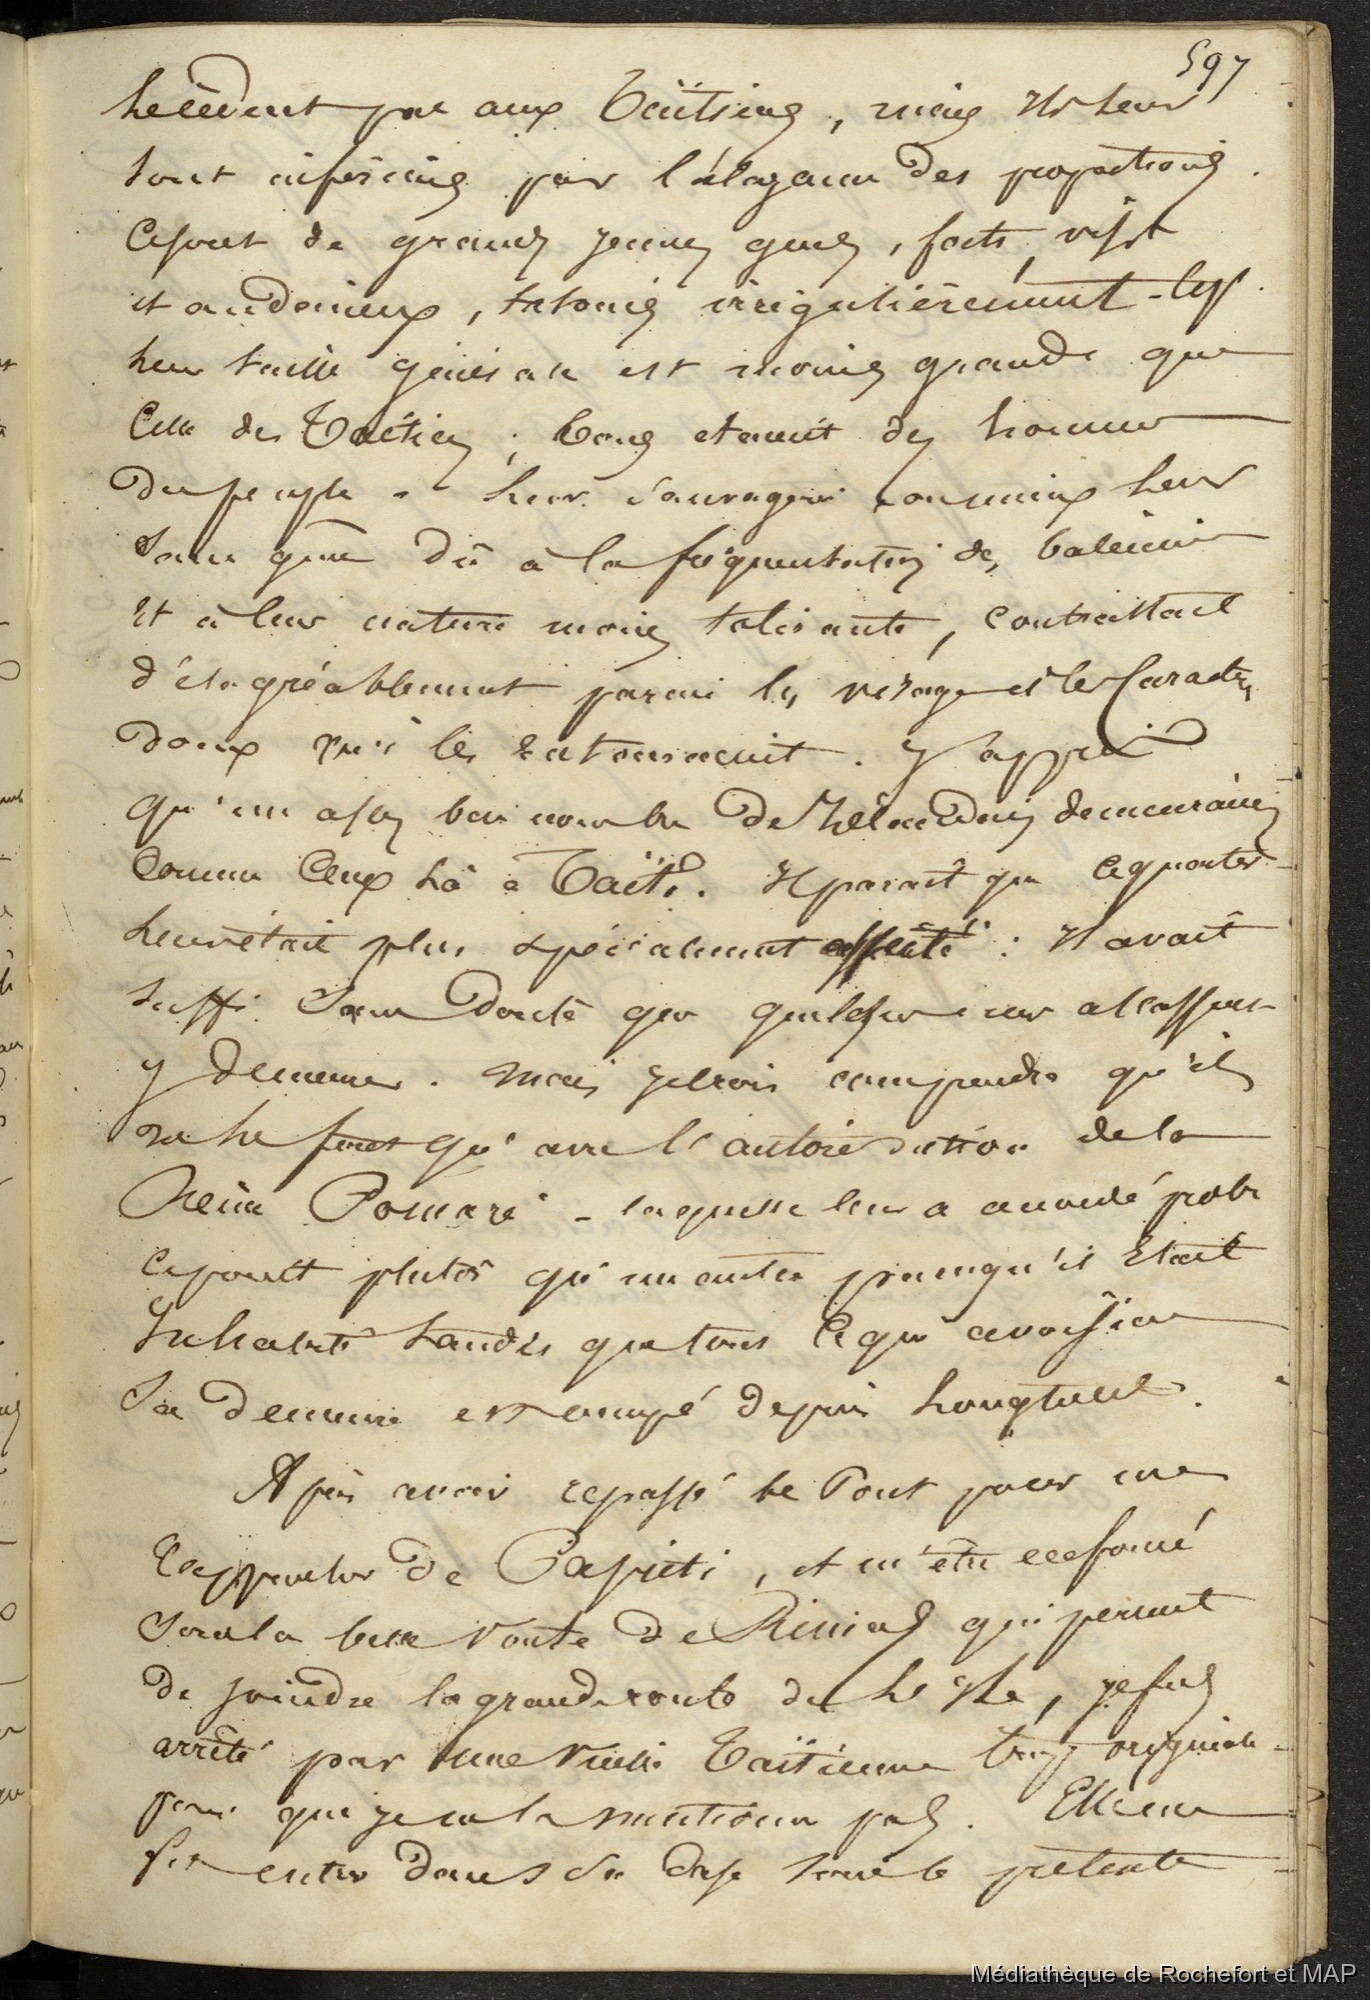 597
ne cèdent pas aux Taïtiens, mais ils leur
sont inférieurs par l'élégance des proportions.
Ce sont de grands jeunes gens, forts, vifs
et audacieux, tatoués irrégulièrement.
leur taille générale est moins grande que
celle des Taïtiens; tous étaient des hommes
du peuple. leur sauvagerie ou mieux leur
sans gêne dû à la fréquentation des baleiniers
et à leur nature moins tolérante, contrastait
désagréablement parmi les visages et les caractères
doux qui les entouraient. J'appris
qu'un assez bon nombre de Zélandais demeuraient
comme ceux là à Taïti. Il paraît que ce quartier
leur était plus spécialement affecté: il avait
suffi sans doute que quelques uns allassent
y demeurer. Mais je crois comprendre qu'ils
ne le font qu'avec l'autorisation de la
Reine Pomaré - laquelle leur a accordé
ce point plutôt qu'un autre parce qu'il était
inhabité tandis que tout ce qui avoisine
sa demeure est occupé depuis longtemps.
Après avoir repassé le Pont pour me
rapprocher de Papiéti, et m'être enfoncé
sous la belle voute de qui permet
de joindre la grande route de l'île, je fus
arrêté par une vieille Taïtienne trop originale
pour que je ne la mentionne pas. Elle me
fit entrer dans sa case sous le prétexte
Médiathèque de Rochefort et MAP